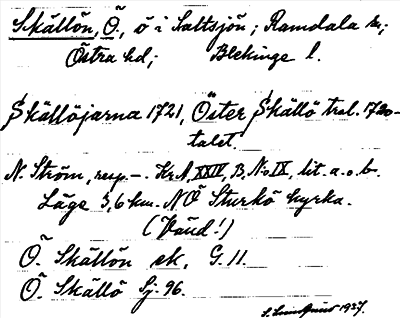 Skällön, Ö., ö i Saltsjön; Ramdala sn;
Östra hd; Blekinge l.
Skällöjarna 1721, Öster Skällö trol. 1720-
talet.
N. Ström, resp. -. Kr. A, XXIV, B, No IX, lit. a. o. b.
Läge 3,6 km. NÖ Sturkö kyrka.
(Vänd!)
Ö. Skällön ek, G. 11.
Ö. Skällö Sj. 96.
S. Lindqvist 1927.